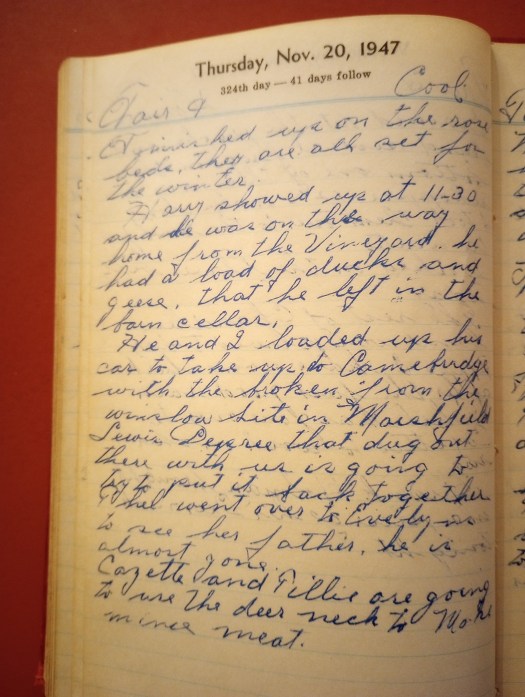 Thursday, Nov. 20, 1947
324th day — 41 days follow
Fair & Cool
Finished up on the rose
beds, they are all set for
the winter.
Harry showed up at 11-30
and he was on this way
home from the Vineyard. he
had a load of ducks and
geese, that he left in the
barn cellar.
He and I loaded up his
car to take up to Camebridge
with the broken from the
winslow site in Marshfield
Lewis that dug out
there with us is going to
try to put it back together
went over to Evelyns
to see her father, he is
almost gone.
and Tillie are going
to use the deer neck to Make
mince meat.